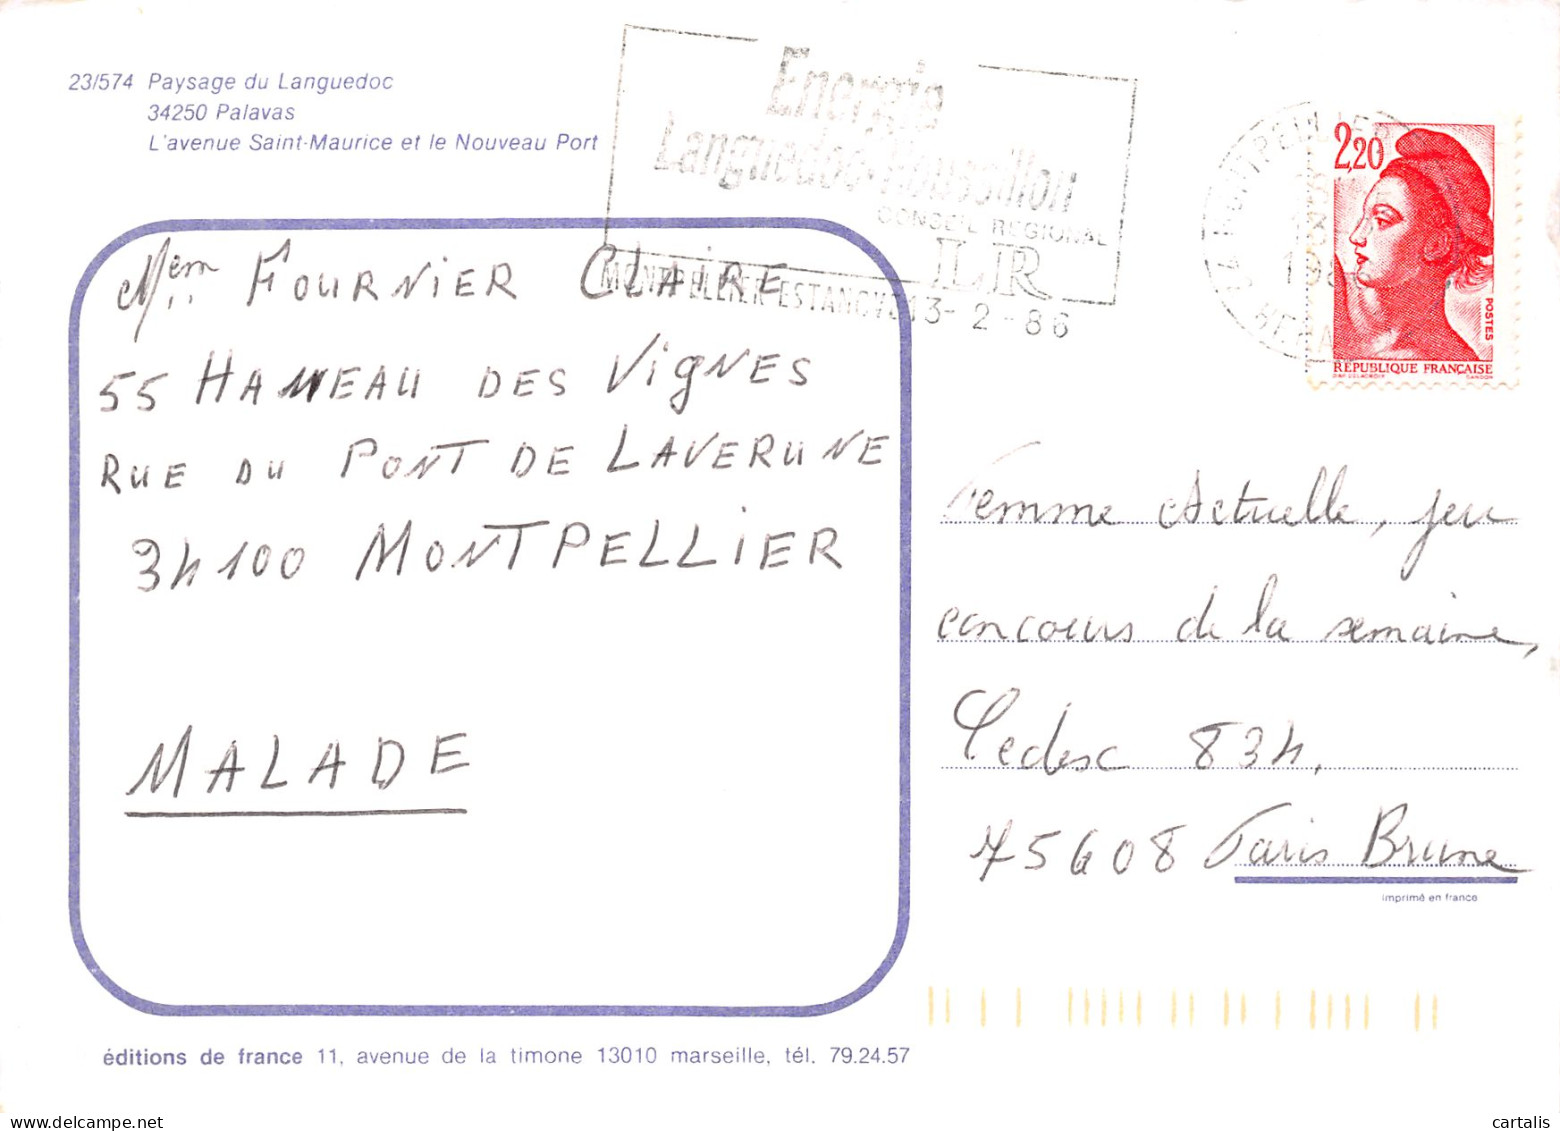 23/574 Paysage du Languedoc
34250 Palavas
L'avenue Saint-Maurice et le Nouveau Port
Energie
Languedoc-Roussillon
CONSEIL REGIONAL
LR
MONTPELLIER-ESTANOVE 13-2-86
2,20
POSTES
RÉPUBLIQUE FRANÇAISE
Mem FOURNIER CLAIRE
55 HAMEAU DES VIGNES
RUE DU PONT DE LAVERUNE
34100 MONTPELLIER
MALADE
Femme Actuelle, jeu
concours de la semaine,
Cedex 834.
75608 Paris Brune
imprimé en france
éditions de france 11, avenue de la timone 13010 marseille, tél. 79.24.57
delcampe.net
cartalis